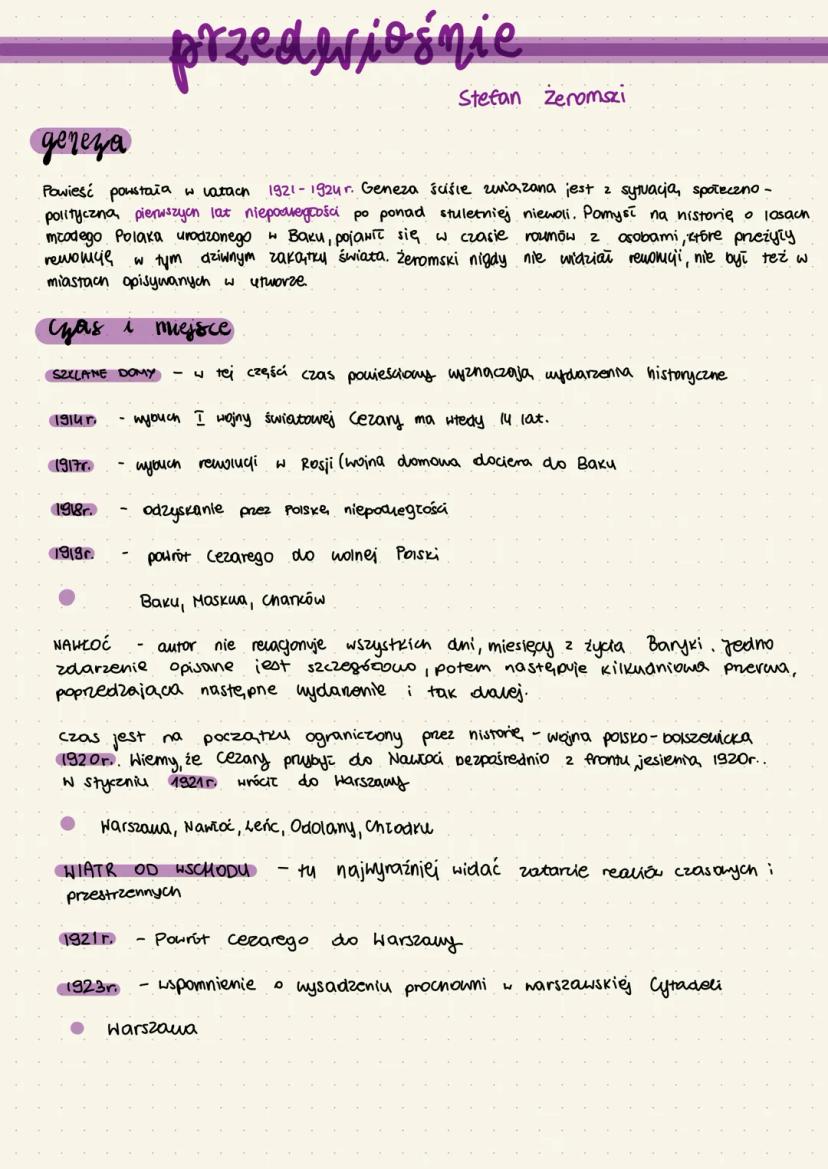 przedwiośnie
Stefan Żeromski
geneza
Powieść powstała w latach 1921-1924r. Geneza ściśle związana jest z sytuacją społeczno-
polityczną pierwszych lat niepodległości po ponad stuletniej niewoli. Pomysł na historię o losach
młodego Polaka urodzonego w Baku, pojawił się w czasie rozmów z osobami, które przeżyły
rewolucję w tym dziwnym zakątku świata. Żeromski nigdy nie widział rewolucji, nie był też w
miastach opisywanych w utworze.
czas i miejsce
SZKLANE DOMY - w tej części czas powieściowy wyznaczają wydarzenia historyczne
1914r. - wybuch I wojny światowej Cezary ma wtedy 14 lat.
1917r. - wybuch rewolucji w Rosji (wojna domowa dociera do Baku
1918r. - odzyskanie przez Polskę niepodległości
1919r. - powrót Cezarego do wolnej Polski
Baku, Moskwa, Charków
NAWŁOĆ - autor nie relacjonuje wszystkich dni, miesięcy z życia Baryki. Jedno
zdarzenie opisane jest szczegółowo, potem następuje kilkudniowa przerwa,
poprzedzająca następne wydarzenie i tak dalej.
Czas jest na początku ograniczony przez historię - wojna polsko-bolszewicka
1920r. Wiemy, że Cezary przybył do Nawłoci bezpośrednio z frontu jesienią 1920r..
W styczniu 1921r. wrócił do Warszawy
Warszawa, Nawłoć, Leńc, Odolany, Chłodku
WIATR OD WSCHODU - tu najwyraźniej widać zatarcie realiów czasowych i
przestrzennych
1921r. - Powrót Cezarego do Warszawy
1923r. - wspomnienie o wysadzeniu prochowni w warszawskiej Cytadeli
Warszawa